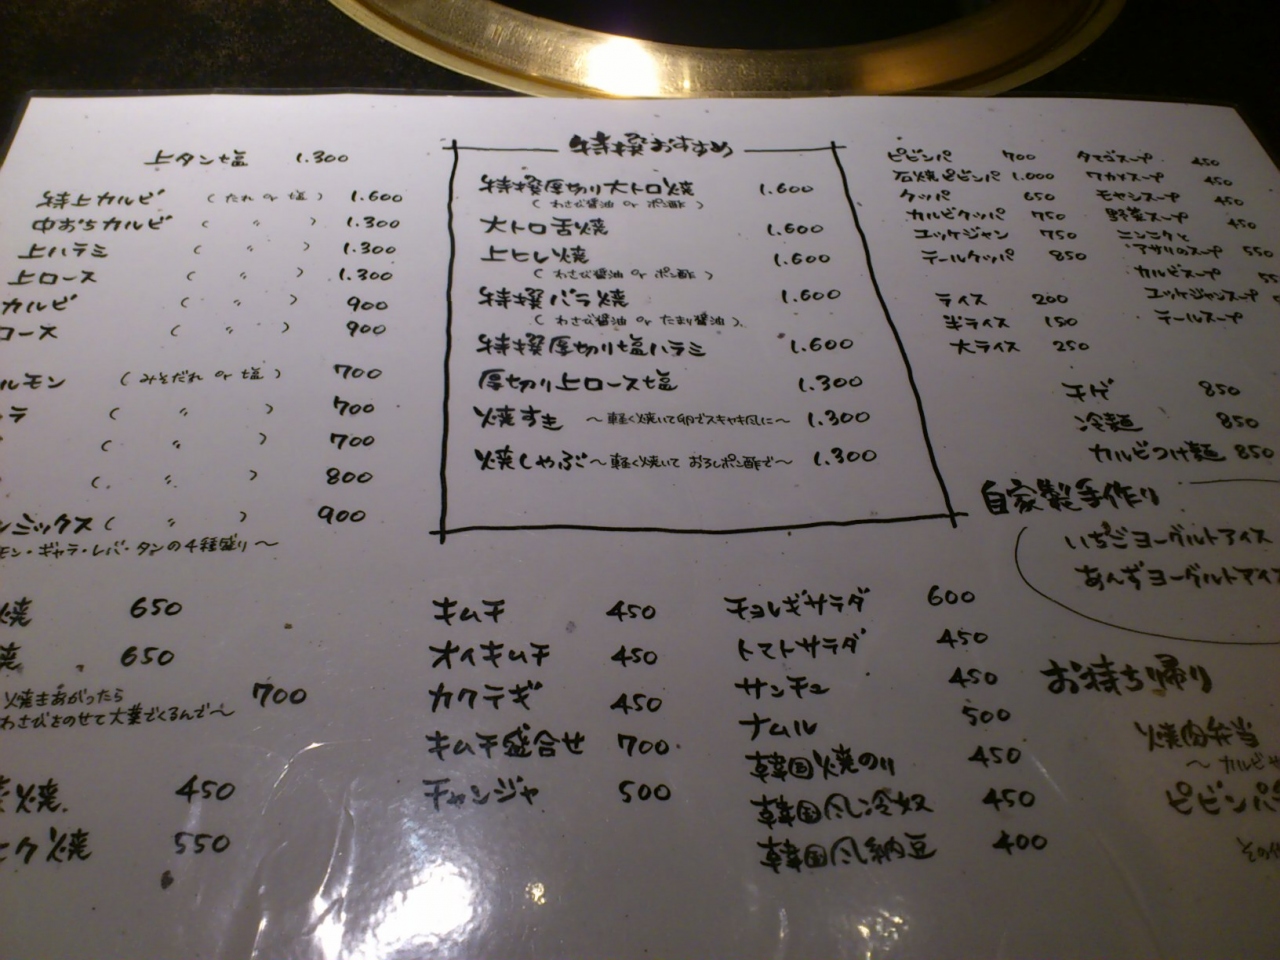 上タン塩 1.300
特上カルビ (たれ or 塩) 1.600
中おちカルビ ( 〃 ) 1.300
上ハラミ ( 〃 ) 1.300
上ロース ( 〃 ) 1.300
カルビ ( 〃 ) 900
ロース ( 〃 ) 900
ルモン (みそだれ or 塩) 700
ラ ( 〃 ) 700
( 〃 ) 700
( 〃 ) 800
ンミックス ( 〃 ) 900
モン・ギャラ・レバ・タンの4種盛り〜
焼 650
焼 650
焼きあがったら 700
わさびをのせて大葉でくるんで〜
焼 450
ニク焼 550
特撰おすすめ
特撰厚切り大トロ焼 1.600
(わさび醤油 or ポン酢)
大トロ舌焼 1.600
上ヒレ焼 1.600
(わさび醤油 or ポン酢)
特撰バラ焼 1.600
(わさび醤油 or たまり醤油)
特撰厚切り塩ハラミ 1.600
厚切り上ロース塩 1.300
焼すき 〜軽く焼いて卵でスキヤキ風に〜 1.300
焼しゃぶ 〜軽く焼いておろしポン酢で〜 1.300
キムチ 450
オイキムチ 450
カクテギ 450
キムチ盛合せ 700
チャンジャ 500
チョレギサラダ 600
トマトサラダ 450
サンチュ 450
ナムル 500
韓国焼のり 450
韓国風冷奴 450
韓国風納豆 400
ビビンバ 700
石焼ビビンバ 1.000
クッパ 650
カルビクッパ 750
ユッケジャン 750
テールクッパ 850
ライス 200
半ライス 150
大ライス 250
タマゴスープ 450
ワカメスープ 450
モヤシスープ 450
野菜スープ 450
ニンニクと
アサリのスープ 550
カルビスープ
ユッケジャンスープ
テールスープ
チゲ 850
冷麺 850
カルビつけ麺 850
自家製手作り
いちごヨーグルトアイス
あんずヨーグルトアイス
お持ち帰り
焼肉弁当
〜カルビ
ビビンバ
その他